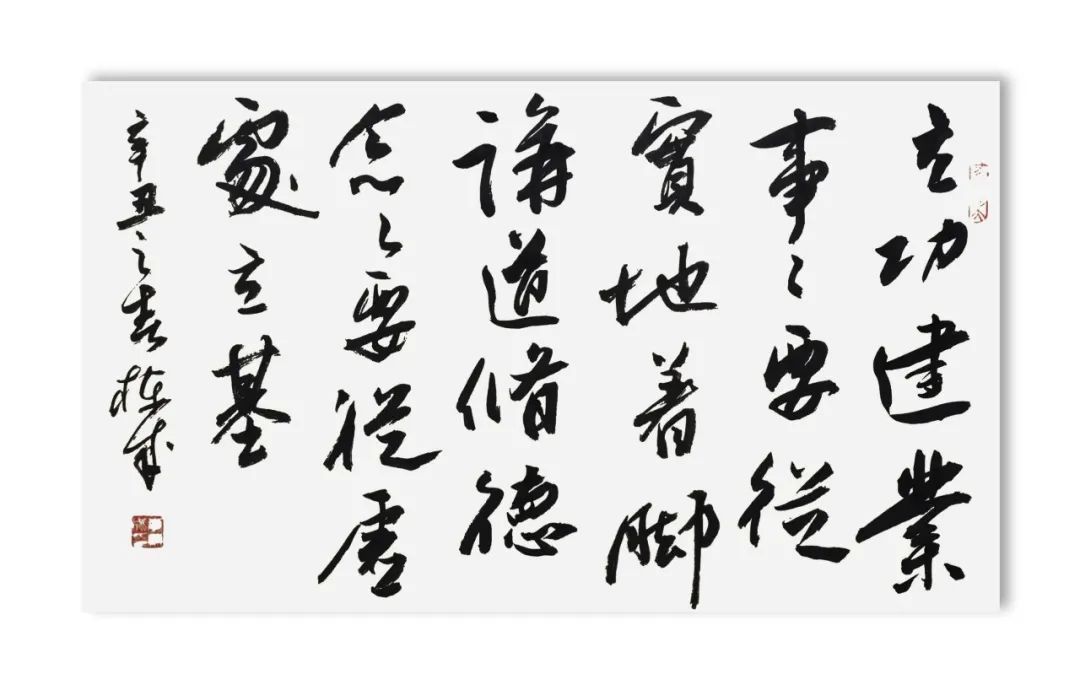 立功建業
事々要從
實地着脚
講道脩德
念々要從虛
處立基
辛丑之春 棟成